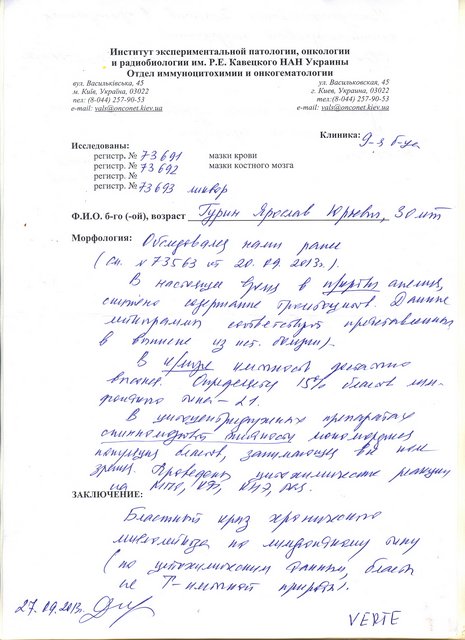 Институт экспериментальной патологии, онкологии
и радиобиологии им. Р.Е. Кавецкого НАН Украины
Отдел иммуноцитохимии и онкогематологии
вул. Васильківська, 45
м. Київ, Україна, 03022
тел: (8-044) 257-90-53
e-mail: vals@onconet.kiev.ua
ул. Васильковская, 45
г. Киев, Украина, 03022
тел:(8-044) 257-90-53
e-mail: vals@onconet.kiev.ua
Клиника: 9-я б-ца
Исследованы:
регистр. № 73691 мазки крови
регистр. № 73692 мазки костного мозга
регистр. №
регистр. № 73693 ликвор
Ф.И.О. б-го (-ой), возраст Гурин Ярослав Юрьевич, 30 лет
Морфология: Обследовался нами ранее
(см. № 73563 от 20.09.2013г.).
В настоящее время в
снижено содержание тромбоцитов. Данные
лейкограммы соответствуют представленным
в выписке из ист. болезни).
В к/мозге клеточность довольно
высокая. Определяется 15% бластов
21.
В цитоцентрифужных препаратах
спинномозговой жидкости мономорфная
популяция бластов, занимающая все поле
зрения. Проведены цитохимические реакции
на МПО, КФ, АНЭ,
ЗАКЛЮЧЕНИЕ:
Бластный криз хронического
миелолейкоза по лимфоидному типу
(по цитохимическим данным, бласты
не Т-клеточной природы).
27.09.2013г.
VERTE